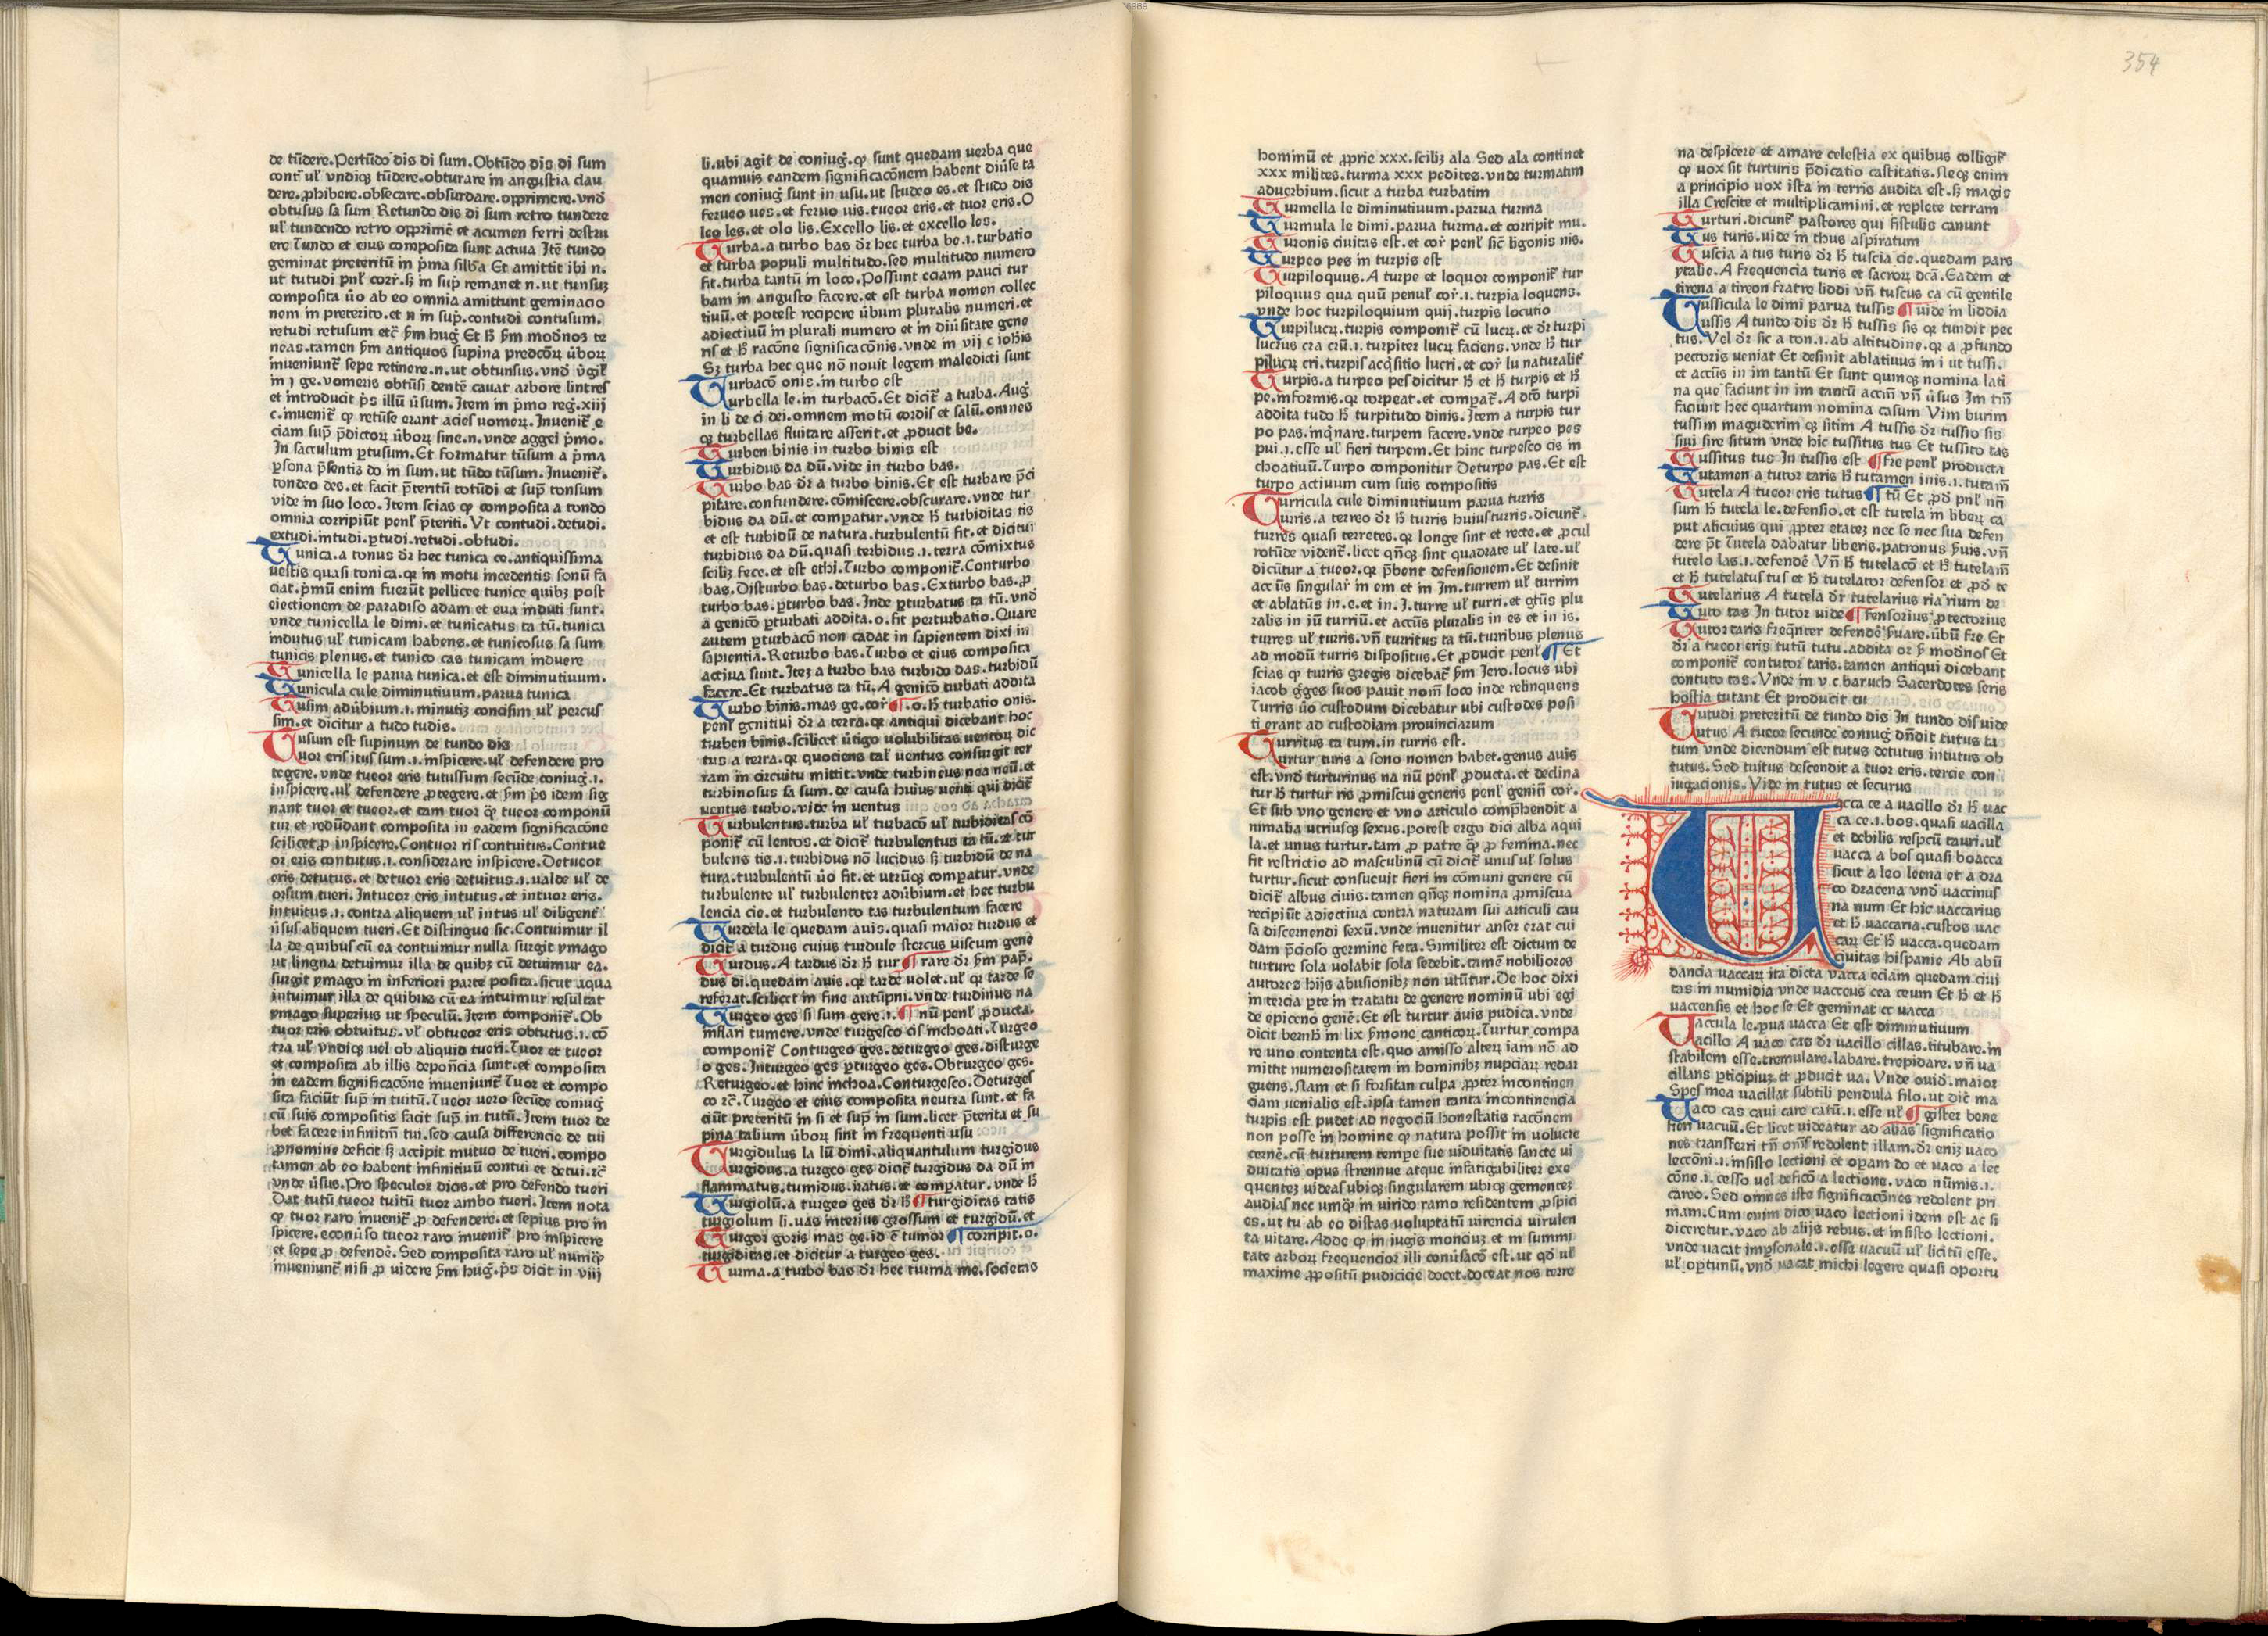 de tūdere.Pertūdo dis di sum.Obtūdo dis di sum
cont̄ ul̄ vndiqꝫ tūdere.obturare in angustia clau
dere.ꝓhibere.obsecare.obsurdare.opprimere.vnđ
obtusus sa sum Retundo dis di sum retro tundere
ul̄ tundendo retro opprimē et acumen ferri destru
ere Tundo et eius composita sunt actiua Itē tundo
geminat preteritū in p̄ma silba Et amittit ibi n.
composita ūo ab eo omnia amittunt geminacio
nem in preterito.et n in sup̄.contudi contusum.
neas.tamen ẜm antiquos supina predcōꝝ ūboꝝ
In sacculum ꝑtusum.Et formatur tūsum a p̄ma
ꝑsona p̄sentis do in sum.ut tūdo tūsum.Inuenit̄.
tondeo des.et facit p̄teritū totūdi et sup̄ tonsum
vide in suo loco.Item scias ꝙ composita a tondo
omnia corripiūt penl̄ p̄teriti.Vt contudi.detudi.
extudi.intudi.ꝑtudi.retudi.obtudi.
Tunica.a tonus dr̄ hec tunica ce.antiquissima
uestis quasi tonica.qꝛ in motu incedentis sonū fa
ciat.p̄mū enim fuerūt pellicee tunice quibꝫ post
eiectionem de paradiso adam et eua induti sunt.
vnde tunicella le dimi.et tunicatus ta tū.tunica
indutus ul̄ tunicam habens.et tunicosus sa sum
tunicis plenus.et tunico cas tunicam induere
Tunicella le parua tunica.et est diminutiuum.
Tunicula cule diminutiuum.parua tunica
Tusim adūbium.i.minutiꝫ concisim ul̄ percus
sim.et dicitur a tudo tudis.
Tusum est supinum de tundo dis
Tuor eris itus sum.i.inspicere.ul̄ defendere pro
tegere.vnde tueor eris tutussum secūde coniug̃.i.
inspicere.ul̄ defendere ꝓtegere.et ẜm p̄s idem sig
nant tuor et tueor.et tam tuor ꝙ̄ tueor componū
tur et redūdant composita in eadem significacōne
scilicet.ꝓ inspicere.Contuor ris contuitus.Contue
or eris contutus.i.considerare inspicere.Detueor
eris detutus.et detuor eris detuitus.i.ualde ul̄ de
orsum tueri.Intueor eris intutus.et intuor eris.
intuitus.i.contra aliquem ul̄ intus ul̄ diligent̄
ūsus aliquem tueri.Et distingue sic.Contuimur il
la de quibus cū ea contuimur nulla surgit ymago
ut lingna detuimur illa de quibꝫ cū detuimur ea.
surgit ymago in inferiori parte posita.sicut aqua
intuimur illa de quibus cū ea intuimur resultat
ymago superius ut speculū.Item componit̄.Ob
tuor eris obtuitus.vl̄ obtueor eris obtutus.i.cō
tra ul̄ vndiqꝫ uel ob aliquid tueri.Tuor et tueor
et composita ab illis deponcia sunt.et composita
in eadem significacōne inueniunt̄ Tuor et compo
sita faciūt sup̄ in tuitū.Tueor uero secūde coniug̃
cū suis compositis facit sup̄ in tutū.Item tuor de
bet facere infinitm̄ tui.sed causa differencie de tui
ꝓnomine deficit ẜꝫ accipit mutuo de tueri.compo
tamen ab eo habent infinitiuū contui et detui.ꝛc̄
vnde ūsus.Pro speculor dico.et pro defendo tueri
Dat tutū tueor tuitū tuor ambo tueri.Item nota
ꝙ tuor raro inuenit̄ ꝓ defendere.et sepius pro in
spicere.econūso tueor raro inuenit̄ pro inspicere
et sepe ꝓ defendē.Sed composita raro ul̄ numꝙ̄
inueniunt̄ nisi ꝓ uidere ẜm hug̃.p̄s dicit in viij
li.ubi agit de coniug̃.ꝙ sunt quedam uerba que
quamuis eandem significacōnem habent diūse ta
men coniug̃ sunt in usu.ut studeo es.et studo dis
ferueo ues.et feruo uis.tueor eris.et tuor eris.O
leo les.et olo lis.Excello lis.et excelleo les.
Turba.a turbo bas dr̄ hec turba be.i.turbatio
et turba populi multitudo.sed multitudo numero
fit.turba tantū in loco.Possunt eciam pauci tur
bam in angusto facere.et est turba nomen collec
tiuū.et potest recipere ūbum pluralis numeri.et
adiectiuū in plurali numero et in diūsitate gene
Sꝫ turba hec que nō nouit legem maledicti sunt
Turbacō onis.in turbo est
Turbella le.in turbacō.Et dicit̄ a turba.Aug̃
in li de ci dei.omnem motū cordis et salū.omnes
qꝫ turbellas fluitare asserit.et ꝓducit be.
Turben binis in turbo binis est
Turbidus da dū.vide in turbo bas.
Turbo bas dr̄ a turbo binis.Et est turbare p̄ci
pitare.confundere.cōmiscere.obscurare.vnde tur
bidus da dū.et comꝑatur.vnde ħ turbiditas tis
et est turbidū de natura.turbulentū fit.et dicitur
turbidus da dū.quasi terbidus.i.terra cōmixtus
sciliꝫ fece.et est ethi.Turbo componit̄.Conturbo
bas.Disturbo bas.deturbo bas.Exturbo bas.ꝓ
turbo bas.ꝑturbo bas.Inde ꝑturbatus ta tū.vnđ
a genitō ꝑturbati addita.o.fit perturbatio.Quare
autem ꝑturbacō non cadat in sapientem dixi in
sapientia.Returbo bas.Turbo et eius composita
actiua sunt.Iteꝫ a turbo bas turbido das.turbidū
facere.Et turbatus ta tū.A genitō turbati addita
Turbo binis.mas ge.cor̄ ¶.o.ħ turbatio onis.
penl̄ genitiui dr̄ a terra.qꝛ antiqui dicebant hoc
turben binis.scilicet ūtigo uolubilitas uentoꝝ dic
tus a terra.qꝛ quociens tal̄ uentus consurgit ter
ram in circuitu mittit.vnde turbineus nea neū.et
turbinosus sa sum.de causa huius uenti qui dicit̄
uentus turbo.vide in uentus
Turbulentus.turba ul̄ turbacō ul̄ turbiditas cō
ponit̄ cū lentos.et dicit̄ turbulentus ta tū.et tur
bulens tis.i.turbidus nō lucidus ẜꝫ turbidū de na
tura.turbulentū ūo fit.et utrūqꝫ comꝑatur.vnde
turbulente ul̄ turbulenter adūbium.et hec turbu
lencia cie.et turbulento tas turbulentum facere
Turdela le quedam auis.quasi maior turdus et
dicit̄ a turdus cuius turdule stercus uiscum gene
Turdus.A tardus dr̄ ħ tur ¶ rare dr̄ ẜm pap̄.
dus di.quedam auis.qꝛ tarde uolet.ul̄ qꝛ tarde se
referat.scilicet in fine autūpni.vnde turdinus na
Turgeo ges si sum gere.i. ¶ nū penl̄ ꝓducta.
inflari tumere.vnde turgesco cis inchoati.Turgeo
componit̄ Conturgeo ges.deturgeo ges.disturge
o ges.Inturgeo ges ꝑturgeo ges.Obturgeo ges.
Returgeo.et hinc inchoa.Conturgesco.Deturges
co ꝛc̄.Turgeo et eius composita neutra sunt.et fa
ciūt preteritū in si et sup̄ in sum.licet p̄terita et su
pina talium ūboꝝ sint in frequenti usu
Turgidulus la lū dimi.aliquantulum turgidus
Turgidus.a turgeo ges dicit̄ turgidus da dū in
flammatus.tumidus.natus.et comꝑatur.vnde ħ
Turgiolū.a turgeo ges dr̄ ħ ¶ turgiditas tatis
turgiolum li.uas interius grossum et turgidū.et
Turgor goris mas ge.id ē tumor ¶ corripit.o.
turgiditas.et dicitur a turgeo ges.
Turma.a turbo bas dr̄ hec turma me.societas
hominū et ꝓprie xxx.sciliꝫ ala Sed ala continet
xxx milites.turma xxx pedites.vnde turmatim
aduerbium.sicut a turba turbatim
Turmella le diminutiuum.parua turma
Turmula le dimi.parua turma.et corripit mu.
Turonis ciuitas est.et cor̄ penl̄ sic̄ ligonis nis.
Turpeo pes in turpis est
Turpiloquus.A turpe et loquor componit̄ tur
piloquus qua quū penul̄ cor̄.i.turpia loquens.
vnde hoc turpiloquium quij.turpis locutio
Turpilucꝝ.turpis componit̄ cū lucꝝ.et dr̄ turpi
lucrus cra crū.i.turpiter lucꝝ faciens.vnde ħ tur
pilucꝝ cri.turpis acq̄sitio lucri.et cor̄ lu naturalit̄
Turpis.a turpeo pes dicitur ħ et ħ turpis et ħ
pe.informis.qꝛ torpeat.et compat̄.A dt̄o turpi
addita tudo ħ turpitudo dinis.Item a turpis tur
po pas.inq̄nare.turpem facere.vnde turpeo pes
pui.i.esse ul̄ fieri turpem.Et hinc turpesco cis in
choatiuū.Turpo componitur Deturpo pas.Et est
turpo actiuum cum suis compositis
Turricula cule diminutiuum parua turris
Turris.a terreo dr̄ ħ turris huius turris.dicunt̄.
turres quasi terretes.qꝛ longe sint et recte.et ꝓcul
rotūde vident̄.licet qn̄qꝫ sint quadrate ul̄ late.ul̄
dicūtur a tueor.qꝛ p̄bent defensionem.Et desinit
acc̄us singular̄ in em et in Im.turrem ul̄ turrim
et ablatūs in.e.et in.I.turre ul̄ turri.et gtūs plu
ralis in iū turriū.et accūs pluralis in es et in is.
turres ul̄ turris.vn̄ turritus ta tū.turribus plenus
ad modū turris dispositus.Et ꝓducit penl̄ ¶ Et
scias ꝙ turris gregis dicebat̄ ẜm Jero.locus ubi
iacob gͤges suos pauit nom̄ loco inde relinquens
Turris ūo custodum dicebatur ubi custodes posi
ti erant ad custodiam prouinciarum
Turritus ta tum.in turris est.
Turtur turis a sono nomen habet.genus auis
est.vnđ turturinus na nū penl̄ ꝓducta.et declina
tur ħ turtur ris ꝓmiscui generis penl̄ genitī cor̄.
Et sub vno genere et vno articulo comp̄hendit a
nimalia utriusqꝫ sexus.potest ergo dici alba aqui
la.et unus turtur.tam ꝓ patre ꝙ̄ ꝓ femina.nec
fit restrictio ad masculinū cū dicit̄ unus ul̄ solus
turtur.sicut consueuit fieri in cōmuni genere cū
dicit̄ albus ciuis.tamen qn̄qꝫ nomina ꝓmiscua
recipiūt adiectiua contra naturam sui articuli cau
sa discernendi sexū.vnde inuenitur anser erat cui
dam p̄cioso germine feta.Similiter est dictum de
turture sola volabit sola sedebit.tamē nobiliores
autores hijs abusionibꝫ non utūtur.De hoc dixi
in tercia ꝑte in tractatu de genere nominū ubi egi
de epiceno genē.Et est turtur auis pudica.vnde
dicit bernħ in lix ẜmone canticoꝝ.Turtur compa
re uno contenta est.quo amisso alteꝝ iam nō ad
mittit numerositatem in hominibꝫ nupciaꝝ redar
guens.Nam et si forsitan culpa ꝓpter incontinen
ciam uenialis est.ipsa tamen tanta incontinencia
turpis est pudet ad negociū honestatis racōnem
non posse in homine ꝙ natura possit in volucre
cernē.cū turturem tempe sue viduitatis sancte ui
duitatis opus strennue atque infatigabiliter exe
quenteꝫ uideas ubiqꝫ singularem ubiqꝫ gementeꝫ
audias nec umꝙ̄ in virido ramo residentem ꝓspici
es.ut tu ab eo distas uoluptatū uirencia uirulen
ta uitare.Adde ꝙ in iugis monciuꝫ et in summi
tate arboꝝ frequencior illi conūsacō est.ut qđ ul̄
maxime ꝓpositū pudicicie docet.doceat nos terre
354
na despicere et amare celestia ex quibus colligit̄
ꝙ uox sit turturis p̄dicatio castitatis.Neqꝫ enim
a principio uox ista in terris audita est.ẜꝫ magis
illa Crescite et multiplicamini.et replete terram
Turturi.dicunt̄ pastores qui fistulis canunt
Tus turis.uide in thus aspiratum
Tuscia a tus turis dr̄ ħ tuscia cie.quedam pars
ytalie.A frequencia turis et sacroꝝ dc̄ā.Eadem et
tirena a tireon fratre liddi vn̄ tuscus ca cū gentile
Tussicula le dimi parua tussis ¶ uide in liddia
Tussis A tundo dis dr̄ ħ tussis sis qꝛ tundit pec
tus.Vel dr̄ sic a ton.i.ab altitudine.qꝛ a ꝓfundo
pectoris ueniat Et desinit ablatiuus in i ut tussi.
et accūs in im tantū Et sunt quinqꝫ nomina lati
na que faciunt in im tantū accm̄ vn̄ ūsus Im tm̄
faciunt hec quartum nomina casum Vim burim
tussim maguderim qꝫ sitim A tussis dr̄ tussio sis
siui sire situm vnde hic tussitus tus Et tussito tas
Tussitus tus In tussis est ¶ fre penl̄ producta
Tutamen a tutor taris ħ tutamen inis.i.tutam̄
Tutela A tueor eris tutus ¶ tū Et ꝓđ pnl̄ nn̄
sum ħ tutela le.defensio.et est tutela in liberꝝ ca
put alicuius qui ꝓpter etateꝫ nec se nec sua defen
dere p̄t Tutela dabatur liberis.patronus ẜuis.vn̄
tutelo las.i.defendē Vn̄ ħ tutelacō et ħ tutelam̄
et ħ tutelatus tus et ħ tutelator defensor et ꝓđ te
Tutelarius A tutela dr̄ tutelarius ria rium de
Tuto tas In tutor uide ¶ fensorius ꝓtectorius
Tutor taris freq̄nter defendē ẜuare.ūbū fre Et
dr̄ a tueor eris tutū tutu.addita or ẜ modn̄os Et
componit̄ contutor taris.tamen antiqui dicebant
contuto tas.Vnde in v c.baruch Sacerdotes seris
hostia tutant Et producit tu
Tutudi preteritū de tundo dis In tundo dis uide
Tutus A tueor secunde coniug̃ dn̄dit tutus ta
tum vnde dicendum est tutus detutus intutus ob
tutus.Sed tuitus descendit a tuor eris.tercie con
iugacionis.Vide in tutus et securus
Uacca ce a uacillo dr̄ ħ uac
ca ce.i.bos.quasi uacilla
et debilis respcū tauri.ul̄
uacca a bos quasi boacca
sicut a leo leena et a dra
co dracena vnđ vaccinus
na num Et hic uaccarius
et ħ uaccaria.custos uac
caꝝ Et ħ uacca.quedam
ciuitas hispanie Ab abū
dancia uaccaꝝ ita dicta vacca eciam quedam ciui
tas in numidia vnde uacceus cea ceum Et ħ et ħ
uaccensis et hoc se Et geminat cc uacca
Uaccula le.ꝑua uacca Et est diminutiuum
Uacillo A uaco cas dr̄ uacillo cillas.titubare.in
stabilem esse.tremulare.labare.trepidare.vn̄ ua
cillans ꝑticipiuꝫ.et ꝓducit ua.Vnde ouiđ.maior
Spes mea uacillat subtili pendula filo.ut dic̄t ma
Uaco cas caui care catū.i.esse ul̄ ¶ gister bene
fieri uacuū.Et licet uideatur ad alias significatio
nes transferri tn̄ om̄s redolent illam.dr̄ eniꝫ uaco
leccōni.i.insisto lectioni et oꝑam do et uaco a lec
cōne.i.cesso uel deficō a lectione.vaco nūmis.i.
careo.Sed omnes iste significacōnes redolent pri
mam.Cum enim dico uaco lectioni idem est ac si
diceretur.vaco ab alijs rebus.et insisto lectioni.
vnde uacat imꝑsonale.i.esse uacuū ul̄ licitū esse.
ul̄ oportunū.vnđ uacat michi legere quasi oportu